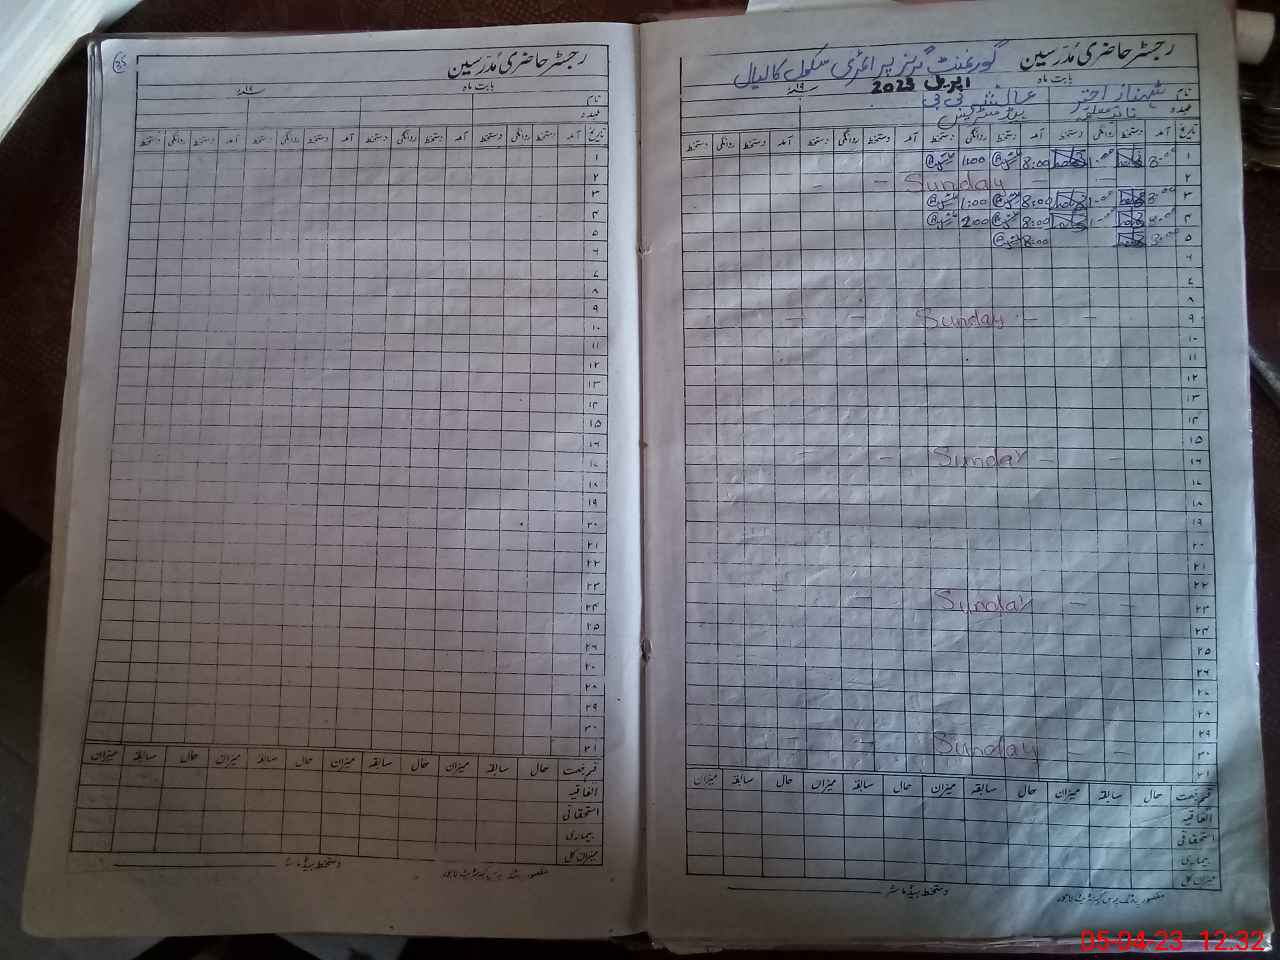 رجسٹر حاضری مُدرّسین گورنمنٹ گرلز پرائمری سکول کالیال
بابت ماہ اپریل 2023 ۱۹ء
نام شہناز اختر عائشہ بی بی
عہدہ
تاریخ آمد دستخط روانگی دستخط آمد دستخط روانگی دستخط آمد دستخط روانگی دستخط آمد دستخط روانگی دستخط
۱ 8:00 1:00 8:00 1:00
۲ — — Sunday — —
۳ 8:00 1:00 8:00 1:00
۴ 8:00 1:00 8:00 2:00
۵ 8:00 8:00
۶
۷
۸
۹ — — Sunday — —
۱۰
۱۱
۱۲
۱۳
۱۴
۱۵
۱۶ — — Sunday — —
۱۷
۱۸
۱۹
۲۰
۲۱
۲۲
۲۳ — — Sunday —
۲۴
۲۵
۲۶
۲۷
۲۸
۲۹
۳۰ — — Sunday — —
۳۱
قسم رخصت حال سابقہ میزان حال سابقہ میزان حال سابقہ میزان حال سابقہ میزان
اتفاقیہ
استحقاقی
بیماری
میزان کل
دستخط ہیڈ ماسٹر
رجسٹر حاضری مُدرّسین
بابت ماہ ۱۹ء
نام
عہدہ
تاریخ آمد دستخط روانگی دستخط آمد دستخط روانگی دستخط آمد دستخط روانگی دستخط آمد دستخط روانگی دستخط
۱
۲
۳
۴
۵
۶
۷
۸
۹
۱۰
۱۱
۱۲
۱۳
۱۴
۱۵
۱۶
۱۷
۱۸
۱۹
۲۰
۲۱
۲۲
۲۳
۲۴
۲۵
۲۶
۲۷
۲۸
۲۹
۳۰
۳۱
قسم رخصت حال سابقہ میزان حال سابقہ میزان حال سابقہ میزان حال سابقہ میزان
اتفاقیہ
استحقاقی
بیماری
میزان کل
دستخط ہیڈ ماسٹر
05-04-23 12:32